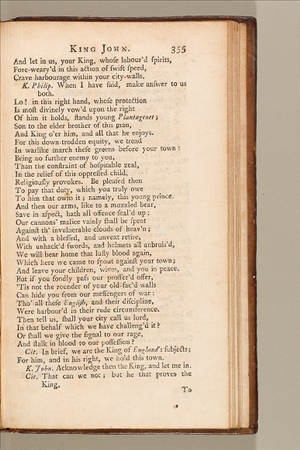 KING JOHN. 355
And let in us, your King, whose labour'd spirits,
Fore-weary'd in this action of swift speed,
Crave harbourage within your city-walls.
K. Philip. When I have said, make answer to us
both.
Lo! in this right hand, whose protection
Is most divinely vow'd upon the right
Of him it holds, stands young Plantagenet;
Son to the elder brother of this man,
And King o'er him, and all that he enjoys.
For this down-trodden equity, we tread
In warlike march these greens before your town:
Being no further enemy to you,
Than the constraint of hospitable zeal,
In the relief of this oppressed child,
Religiously provokes. Be pleased then
To pay that duty, which you truly owe
To him that owns it; namely, this young prince.
And then our arms, like to a muzzled bear,
Save in aspect, hath all offence seal'd up:
Our cannons' malice vainly shall be spent
Against th' invulnerable clouds of heav'n;
And with a blessed, and unvext retire,
With unhack'd swords, and helmets all unbruis'd,
We will bear home that lusty blood again,
Which here we came to spout against your town;
And leave your children, wives, and you in peace.
But if you fondly pass our proffer'd offer,
'Tis not the rounder of your old-fac'd walls
Can hide you from our messengers of war:
Tho' all these English, and their discipline,
Were harbour'd in their rude circumference.
Then tell us, shall your city call us lord,
In that behalf which we have challeng'd it?
Or shall we give the signal to our rage,
And stalk in blood to our possession?
Cit. In brief, we are the King of England's subjects;
For him, and in his right, we hold this town.
K. John. Acknowledge then the King, and let me in.
Cit. That can we not; but he that proves the
King,
To